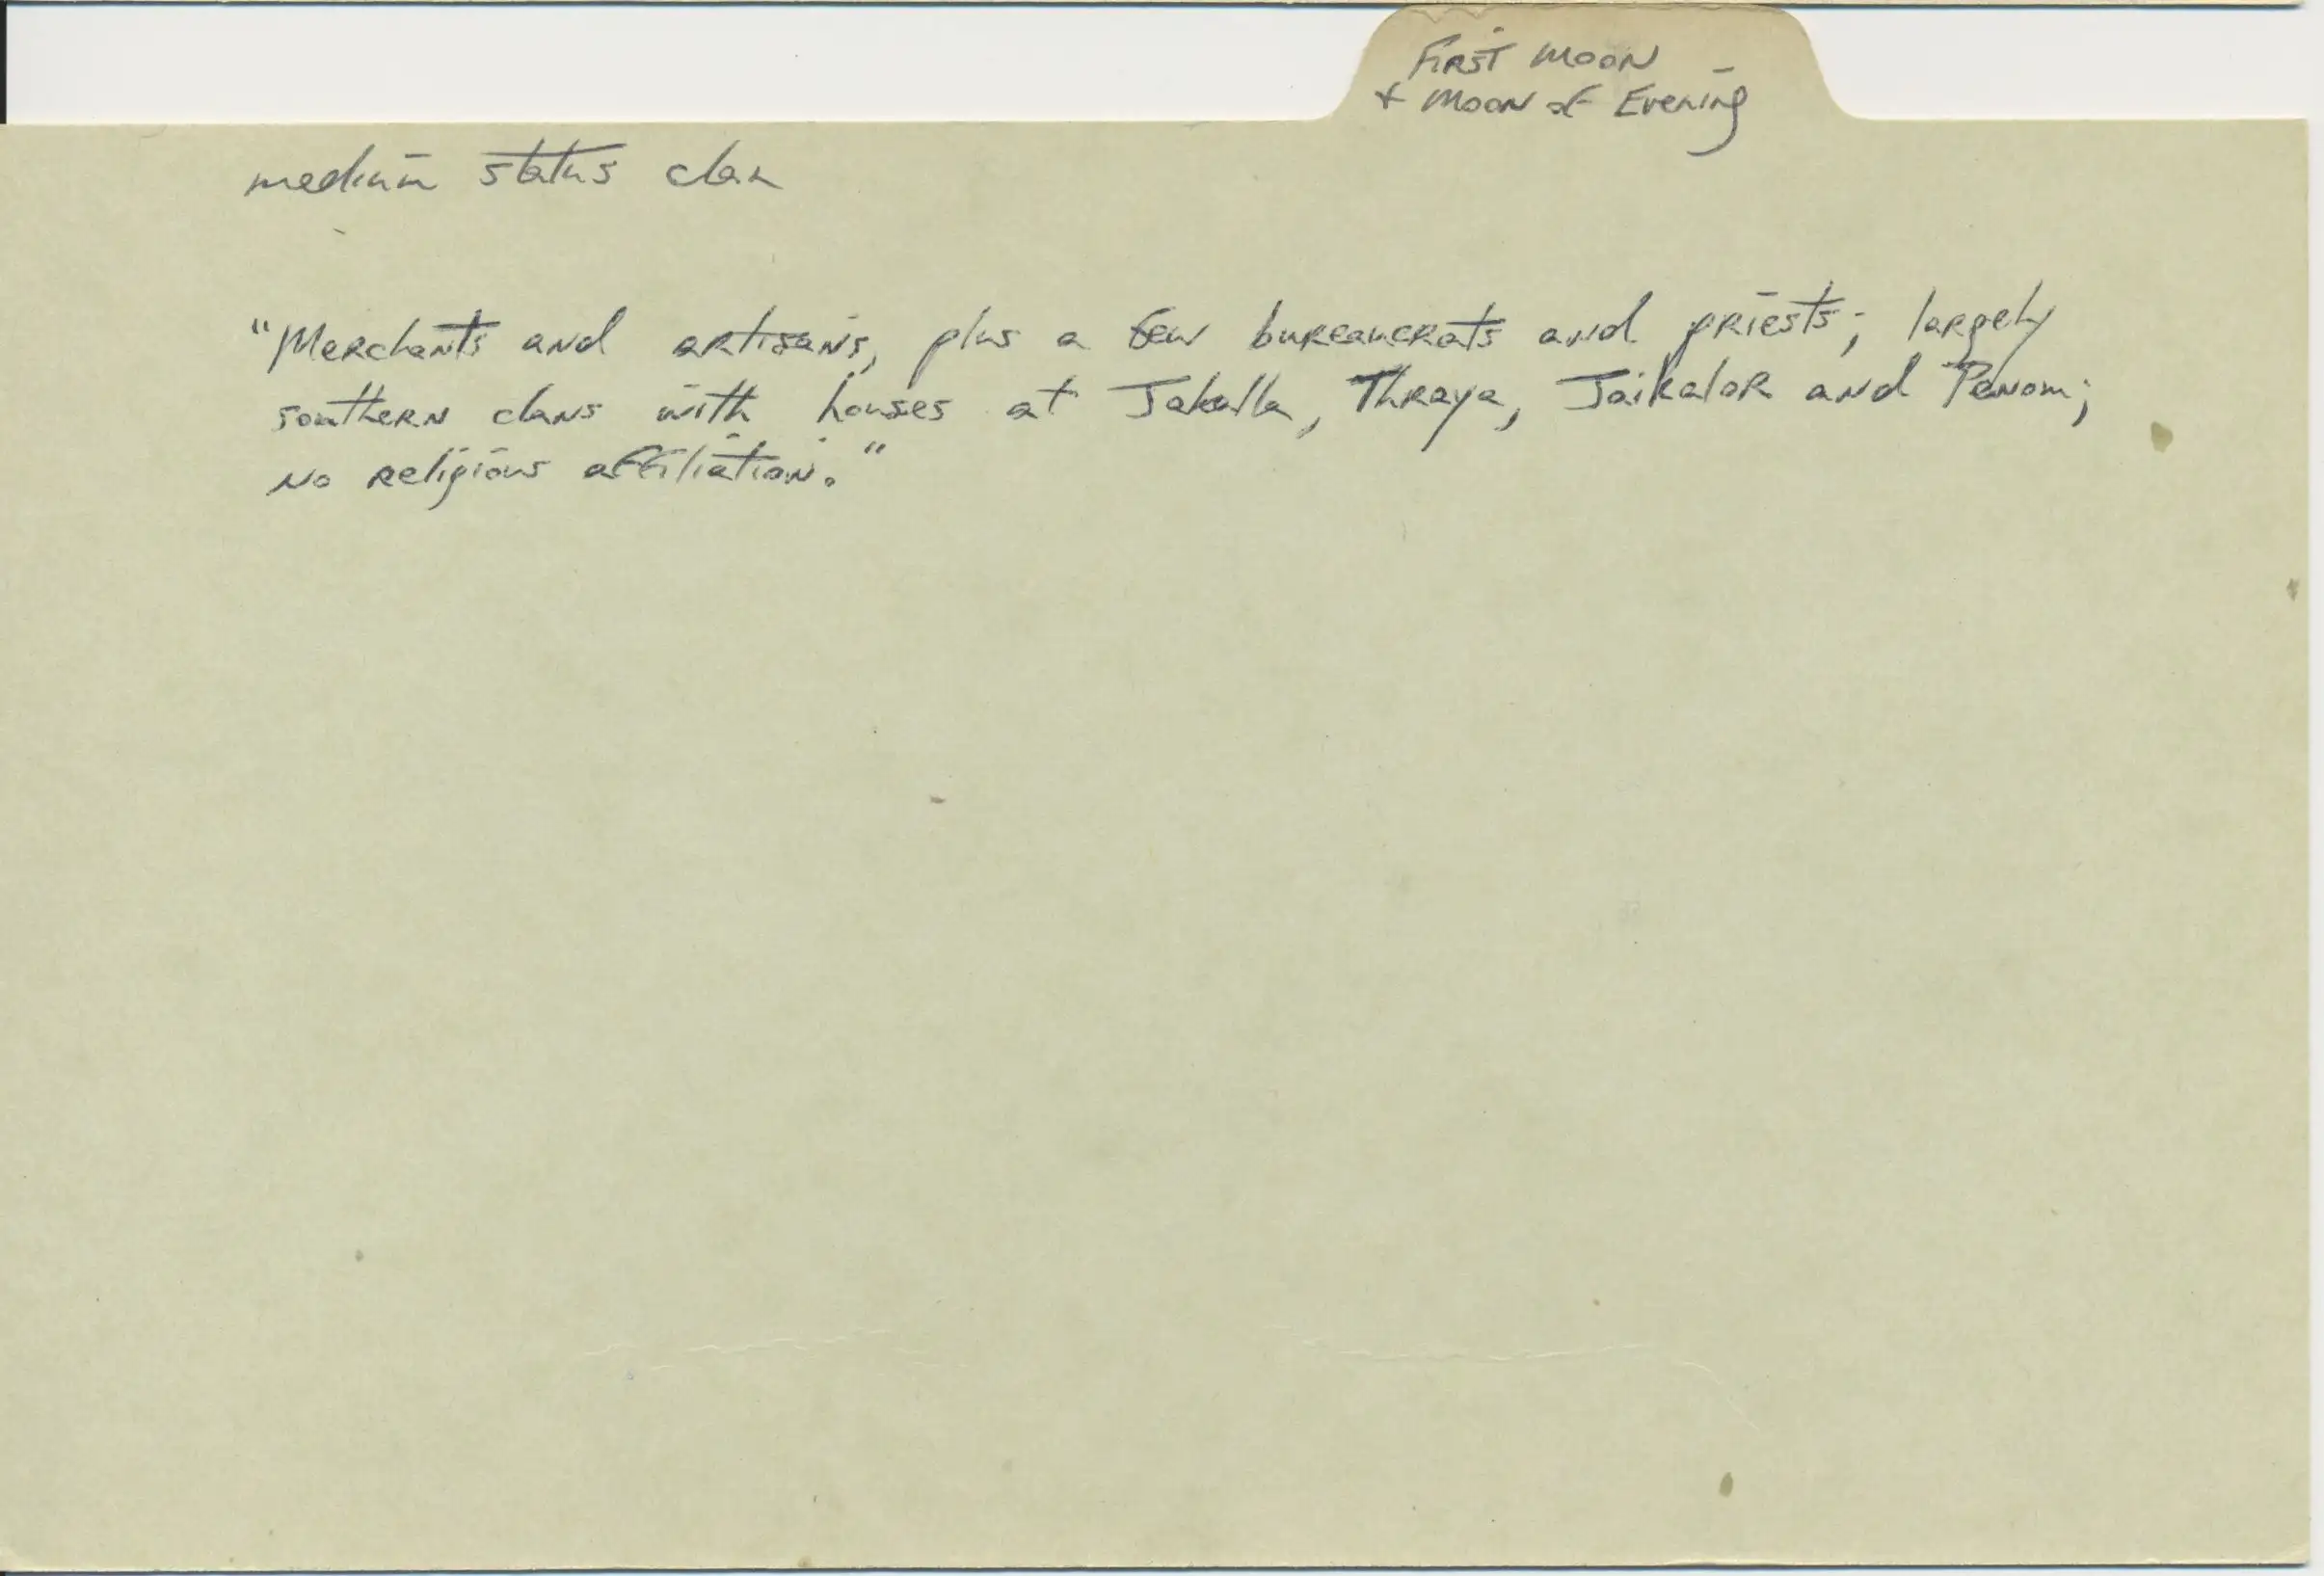 First Moon
+ Moon of Evening
medium status clan
"Merchants and artisans, plus a few bureaucrats and priests; largely
southern clans with houses at Jakalla, Thraya, Jaikalor and Penom;
no religious affiliation."